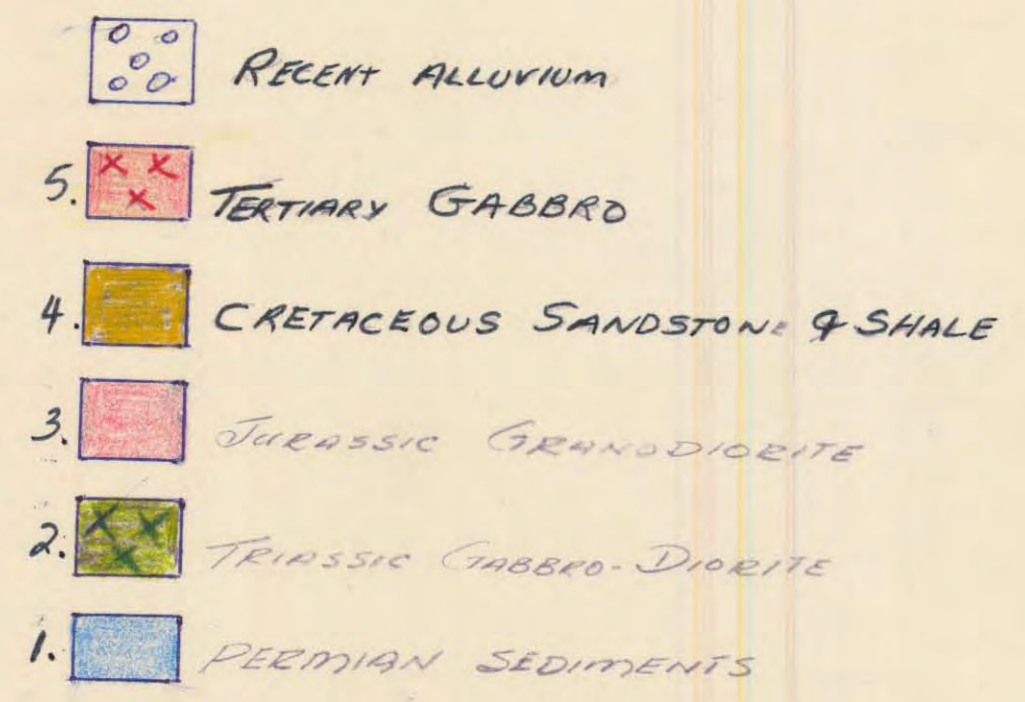 RECENT ALLUVIUM
5. TERTIARY GABBRO
4. CRETACEOUS SANDSTONE & SHALE
3. JURASSIC GRANODIORITE
2. TRIASSIC GABBRO-DIORITE
1. PERMIAN SEDIMENTS